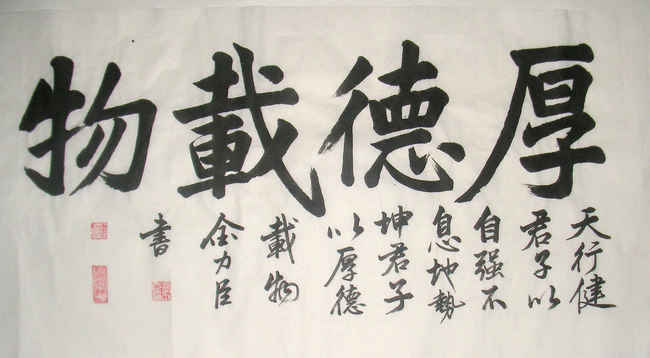 厚德載物
天行健
君子以
自强不
息地勢
坤君子
以厚德
載物
余力臣
書